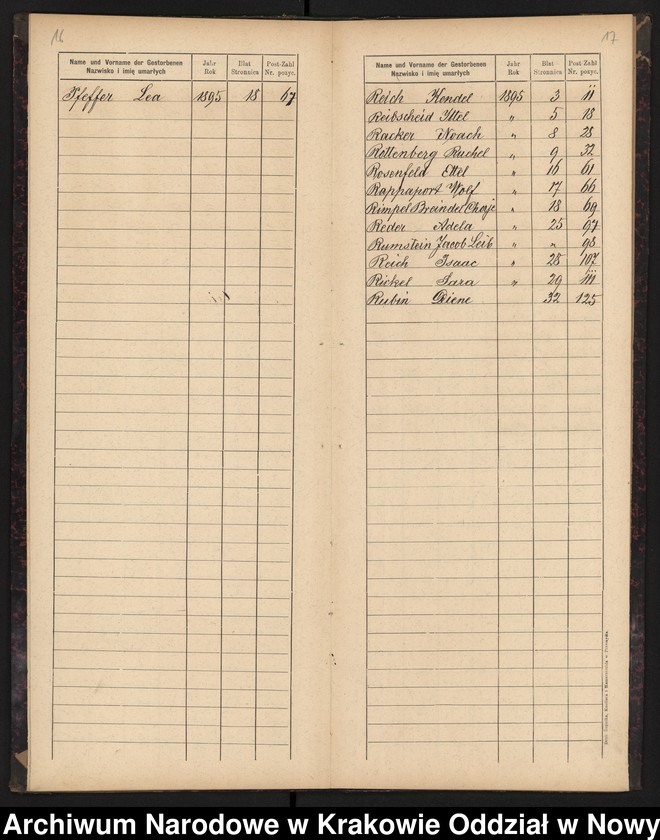 16
Name und Vorname der Gestorbenen Jahr Blat Post-Zahl
Nazwisko i imię umarłych Rok Stronnica Nr. pozyc.
Pfeffer Lea 1895 18 67
17
Name und Vorname der Gestorbenen Jahr Blat Post-Zahl
Nazwisko i imię umarłych Rok Stronnica Nr. pozyc.
Reich Hendel 1895 3 11
Reibscheid Ittel " 5 18
Racker Noach " 8 28
Rottenberg Ruchel " 9 32
Rosenfeld Ettel " 16 61
Rappaport Wolf " 17 66
Rimpel Breindel Chaje " 18 69
Reder Adela " 25 97
Rumstein Jacob Leib " " 98
Reich Isaac " 28 107
Rickel Sara " 29 111
Rubin Diene 32 125
Archiwum Narodowe w Krakowie Oddział w Nowy